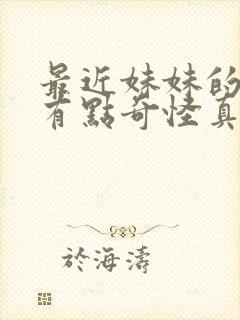 最近妹妹的
有點奇怪真
於海濤